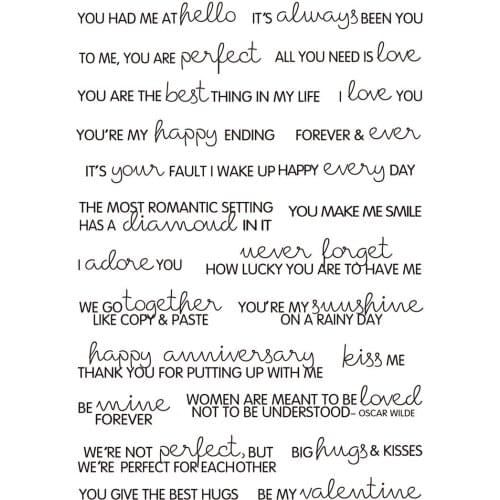 YOU HAD ME AT hello IT'S always BEEN YOU
TO ME, YOU ARE perfect ALL YOU NEED IS love
YOU ARE THE best THING IN MY LIFE I love YOU
YOU'RE MY happy ENDING FOREVER & ever
IT'S your FAULT I WAKE UP HAPPY every DAY
THE MOST ROMANTIC SETTING
HAS A diamond IN IT
YOU MAKE ME SMILE
I adore YOU
never forget
HOW LUCKY YOU ARE TO HAVE ME
WE GO together
LIKE COPY & PASTE
YOU'RE MY sunshine
ON A RAINY DAY
happy anniversary
THANK YOU FOR PUTTING UP WITH ME
kiss ME
BE mine
FOREVER
WOMEN ARE MEANT TO BE loved
NOT TO BE UNDERSTOOD- OSCAR WILDE
WE'RE NOT perfect, BUT
WE'RE PERFECT FOR EACHOTHER
BIG hugs & KISSES
YOU GIVE THE BEST HUGS BE MY valentine